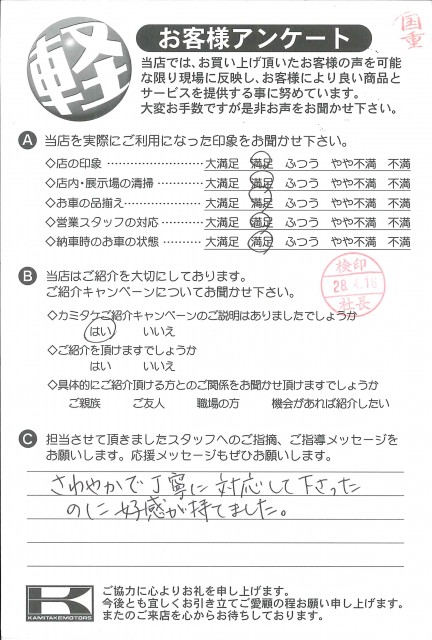 軽
お客様アンケート
国重
当店では、お買い上げ頂いたお客様の声を可能
な限り現場に反映し、お客様により良い商品と
サービスを提供する事に努めています。
大変お手数ですが是非お声をお聞かせ下さい。
A 当店を実際にご利用になった印象をお聞かせ下さい。
◇店の印象 ………………… 大満足 満足 ふつう やや不満 不満
◇店内・展示場の清掃 ………… 大満足 満足 ふつう やや不満 不満
◇お車の品揃え ……………… 大満足 満足 ふつう やや不満 不満
◇営業スタッフの対応 ………… 大満足 満足 ふつう やや不満 不満
◇納車時のお車の状態 ………… 大満足 満足 ふつう やや不満 不満
B 当店はご紹介を大切にしてあります。
ご紹介キャンペーンについてお聞かせ下さい。
検印
28.4.16
社長
◇カミタケご紹介キャンペーンのご説明はありましたでしょうか
はい いいえ
◇ご紹介を頂けますでしょうか
はい いいえ
◇具体的にご紹介頂ける方とのご関係をお聞かせ頂けますでしょうか
ご親族 ご友人 職場の方 機会があれば紹介したい
C 担当させて頂きましたスタッフへのご指摘、ご指導メッセージを
お願いします。応援メッセージもぜひお願いします。
さわやかで丁寧に対応して下さった
のに好感が持てました。
K
KAMITAKEMOTORS
ご協力に心よりお礼を申し上げます。
今後とも宜しくお引き立てご愛顧の程お願い申し上げます。
またのご来店を心からお待ちしております。